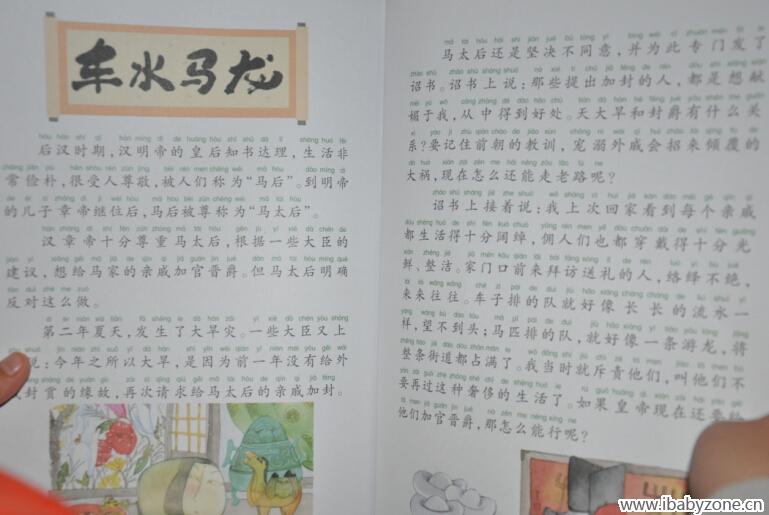 车水马龙
后汉时期，汉明帝的皇后知书达理，生活非
常俭朴，很受人尊敬，被人们称为“马后”。到明帝
的儿子章帝继位后，马后被尊称为“马太后”。
汉章帝十分尊重马太后，根据一些大臣的
建议，想给马家的亲戚加官晋爵。但马太后明确
反对这么做。
第二年夏天，发生了大旱灾。一些大臣又上
说：今年之所以大旱，是因为前一年没有给外
封赏的缘故，再次请求给马太后的亲戚加封。
马太后还是坚决不同意，并为此专门发了
诏书。诏书上说：那些提出加封的人，都是想献
媚于我，从中得到好处。天大旱和封爵有什么关
系？要记住前朝的教训，宠溺外戚会招来倾覆的
大祸，现在怎么还能走老路呢？
诏书上接着说：我上次回家看到每个亲戚
都生活得十分阔绰，佣人们也都穿戴得十分光
鲜、整洁。家门口前来拜访送礼的人，络绎不绝，
来来往往。车子排的队就好像长长的流水一
样，望不到头；马匹排的队，就好像一条游龙，将
整条街道都占满了。我当时就斥责他们，叫他们不
要再过这种奢侈的生活了。如果皇帝现在还要给
他们加官晋爵，那怎么能行呢？
www.ibabyzone.cn